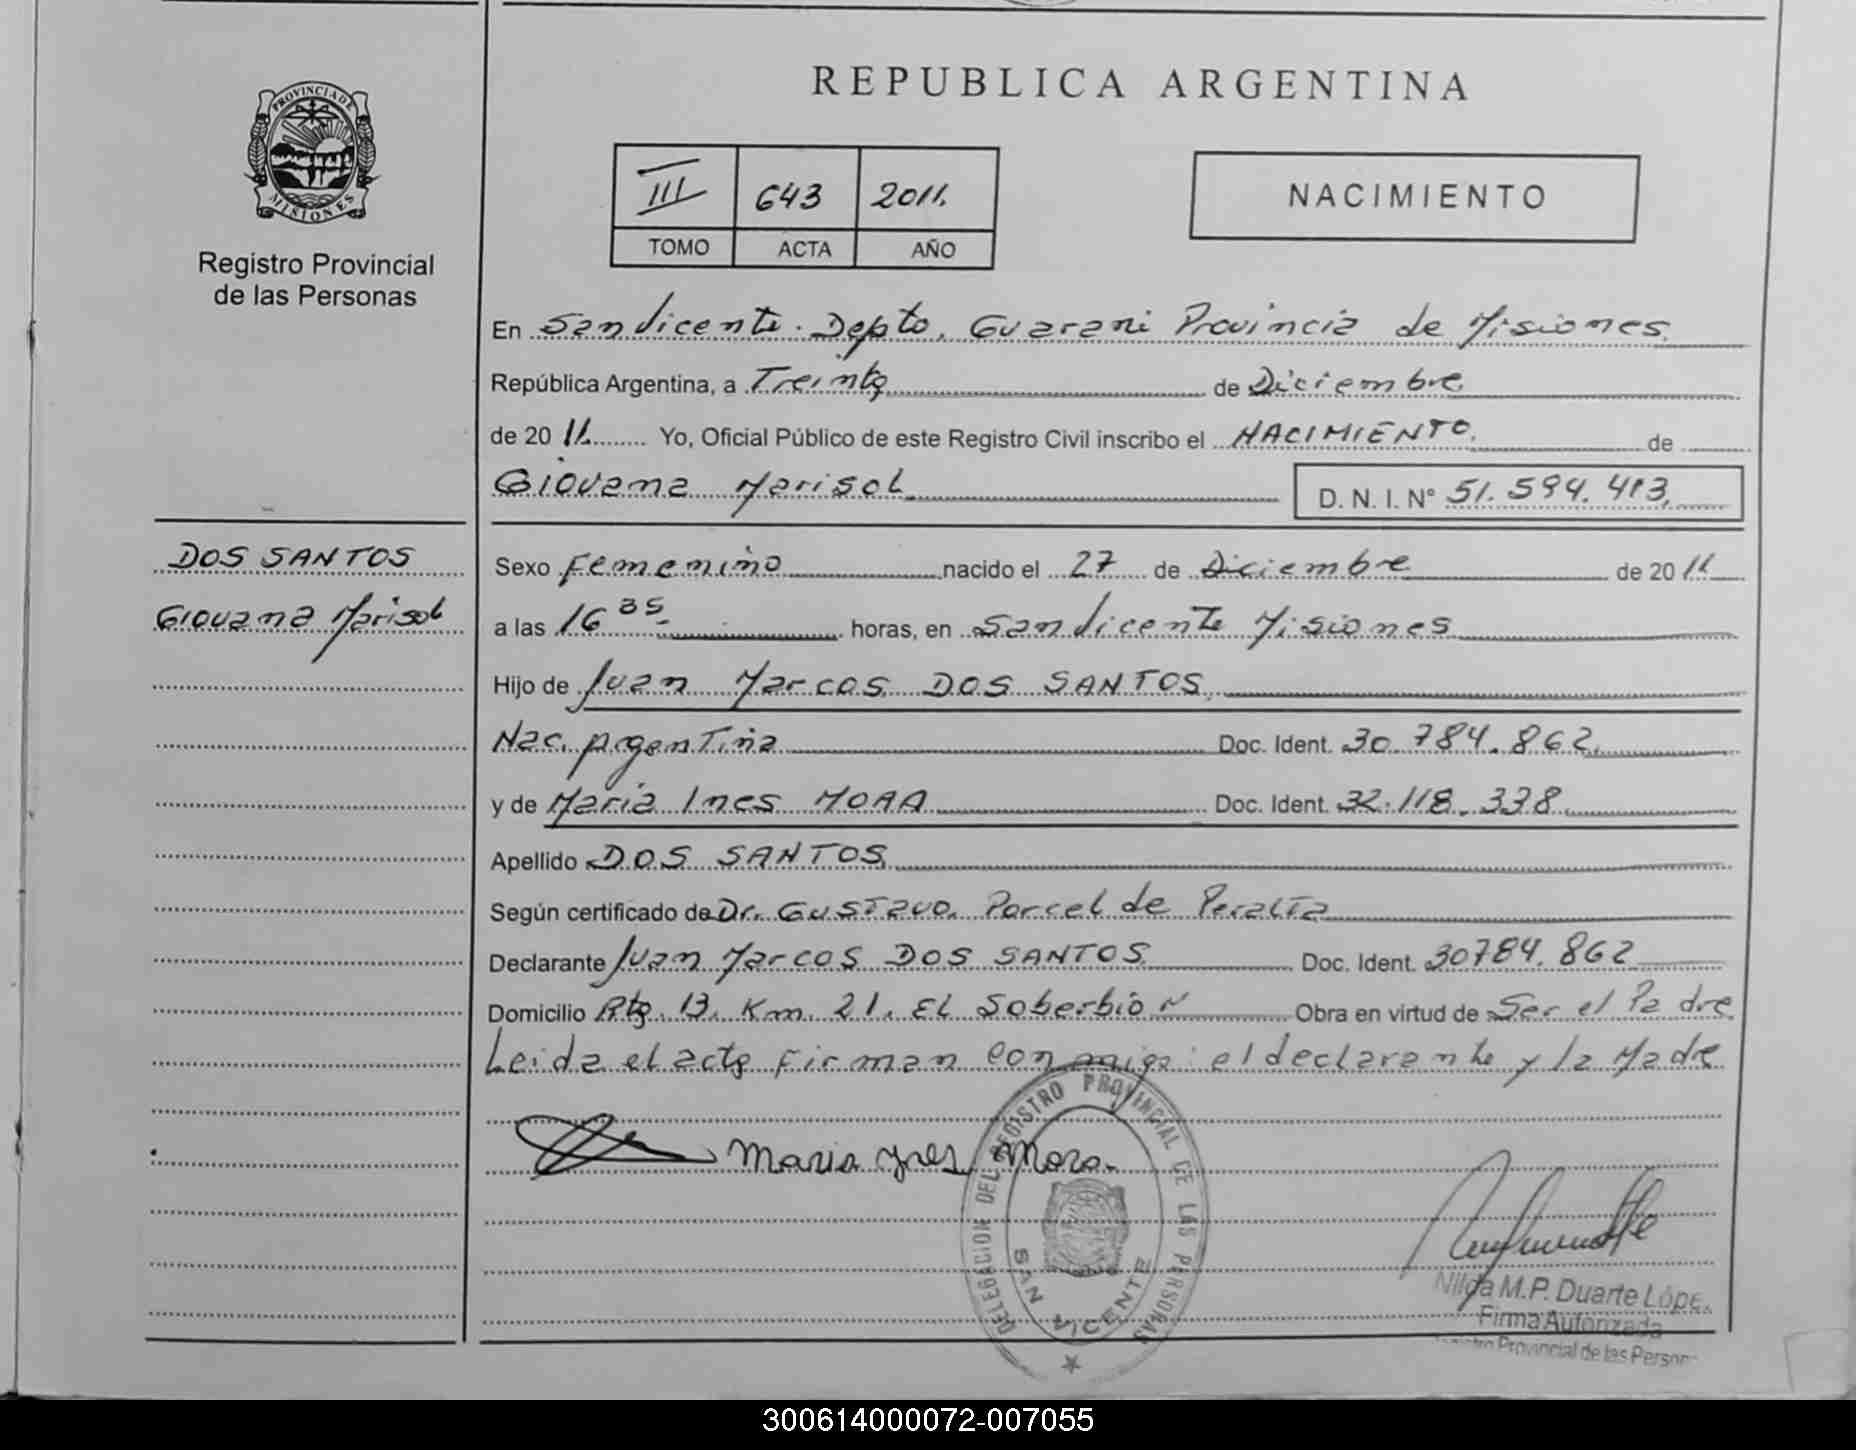 REPUBLICA ARGENTINA
PROVINCIA DE
MISIONES
Registro Provincial
de las Personas
III 643 2011.
TOMO ACTA AÑO
NACIMIENTO
En San Vicente. Depto. Guarani Provincia de Misiones.
República Argentina, a Treinta de Diciembre
de 20 11. Yo, Oficial Público de este Registro Civil inscribo el NACIMIENTO. de
Giovana Marisol D. N. I. N° 51.594.413.
DOS SANTOS
Giovana Marisol
Sexo Femenino nacido el 27 de Diciembre de 20 11
a las 16 35 horas, en San Vicente Misiones
Hijo de Juan Marcos DOS SANTOS
Nac. Argentina Doc. Ident. 30.784.862.
y de Maria Ines MORA Doc. Ident. 32.118.338
Apellido DOS SANTOS
Según certificado de Dr. Gustavo. Porcel de Peralta
Declarante Juan Marcos DOS SANTOS Doc. Ident. 30784.862
Domicilio Rta. 13. Km. 21. El Soberbio Obra en virtud de Ser el Padre
Leida el acta firman conmigo: el declarante y la Madre
Maria Ynes Mora.
DELEGACION DEL REGISTRO PROVINCIAL DE LAS PERSONAS
SAN VICENTE
Nilda M.P. Duarte Lópe
Firma Autorizada
Provincial de las Person
300614000072-007055